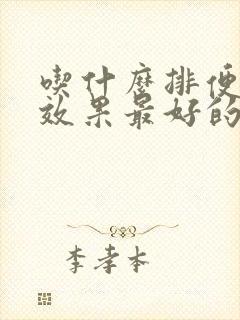 喫什麼排便
效果最好的
李孝本